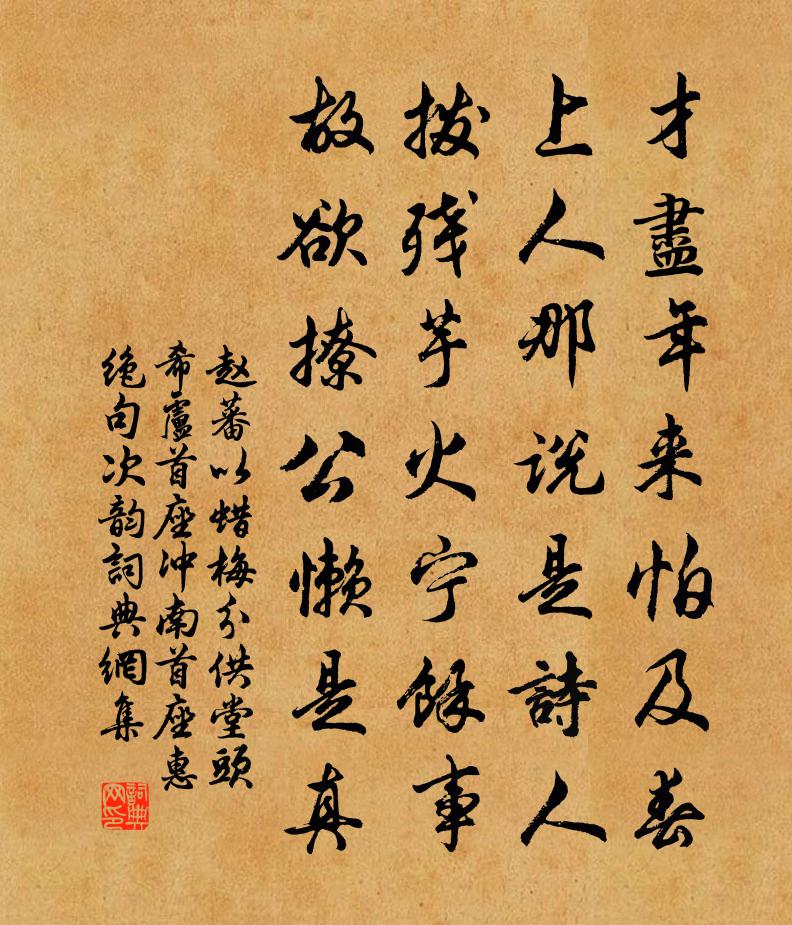 才盡年来怕及春
上人那说是詩人
拨残芋火宁餘事
故欲撩公懒是真
赵蕃以蜡梅分供堂頭
希廬首座冲南首座惠
绝句次韵詞典網集
詞典网印